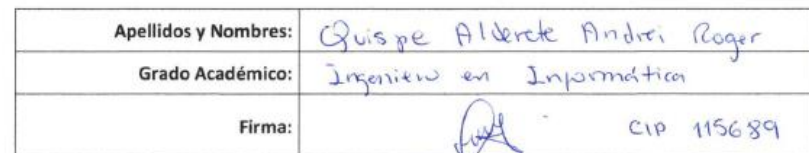 Apellidos y Nombres: Quispe Alderete Andrei Roger
Grado Académico: Ingeniero en Informática
Firma: CIP 115689